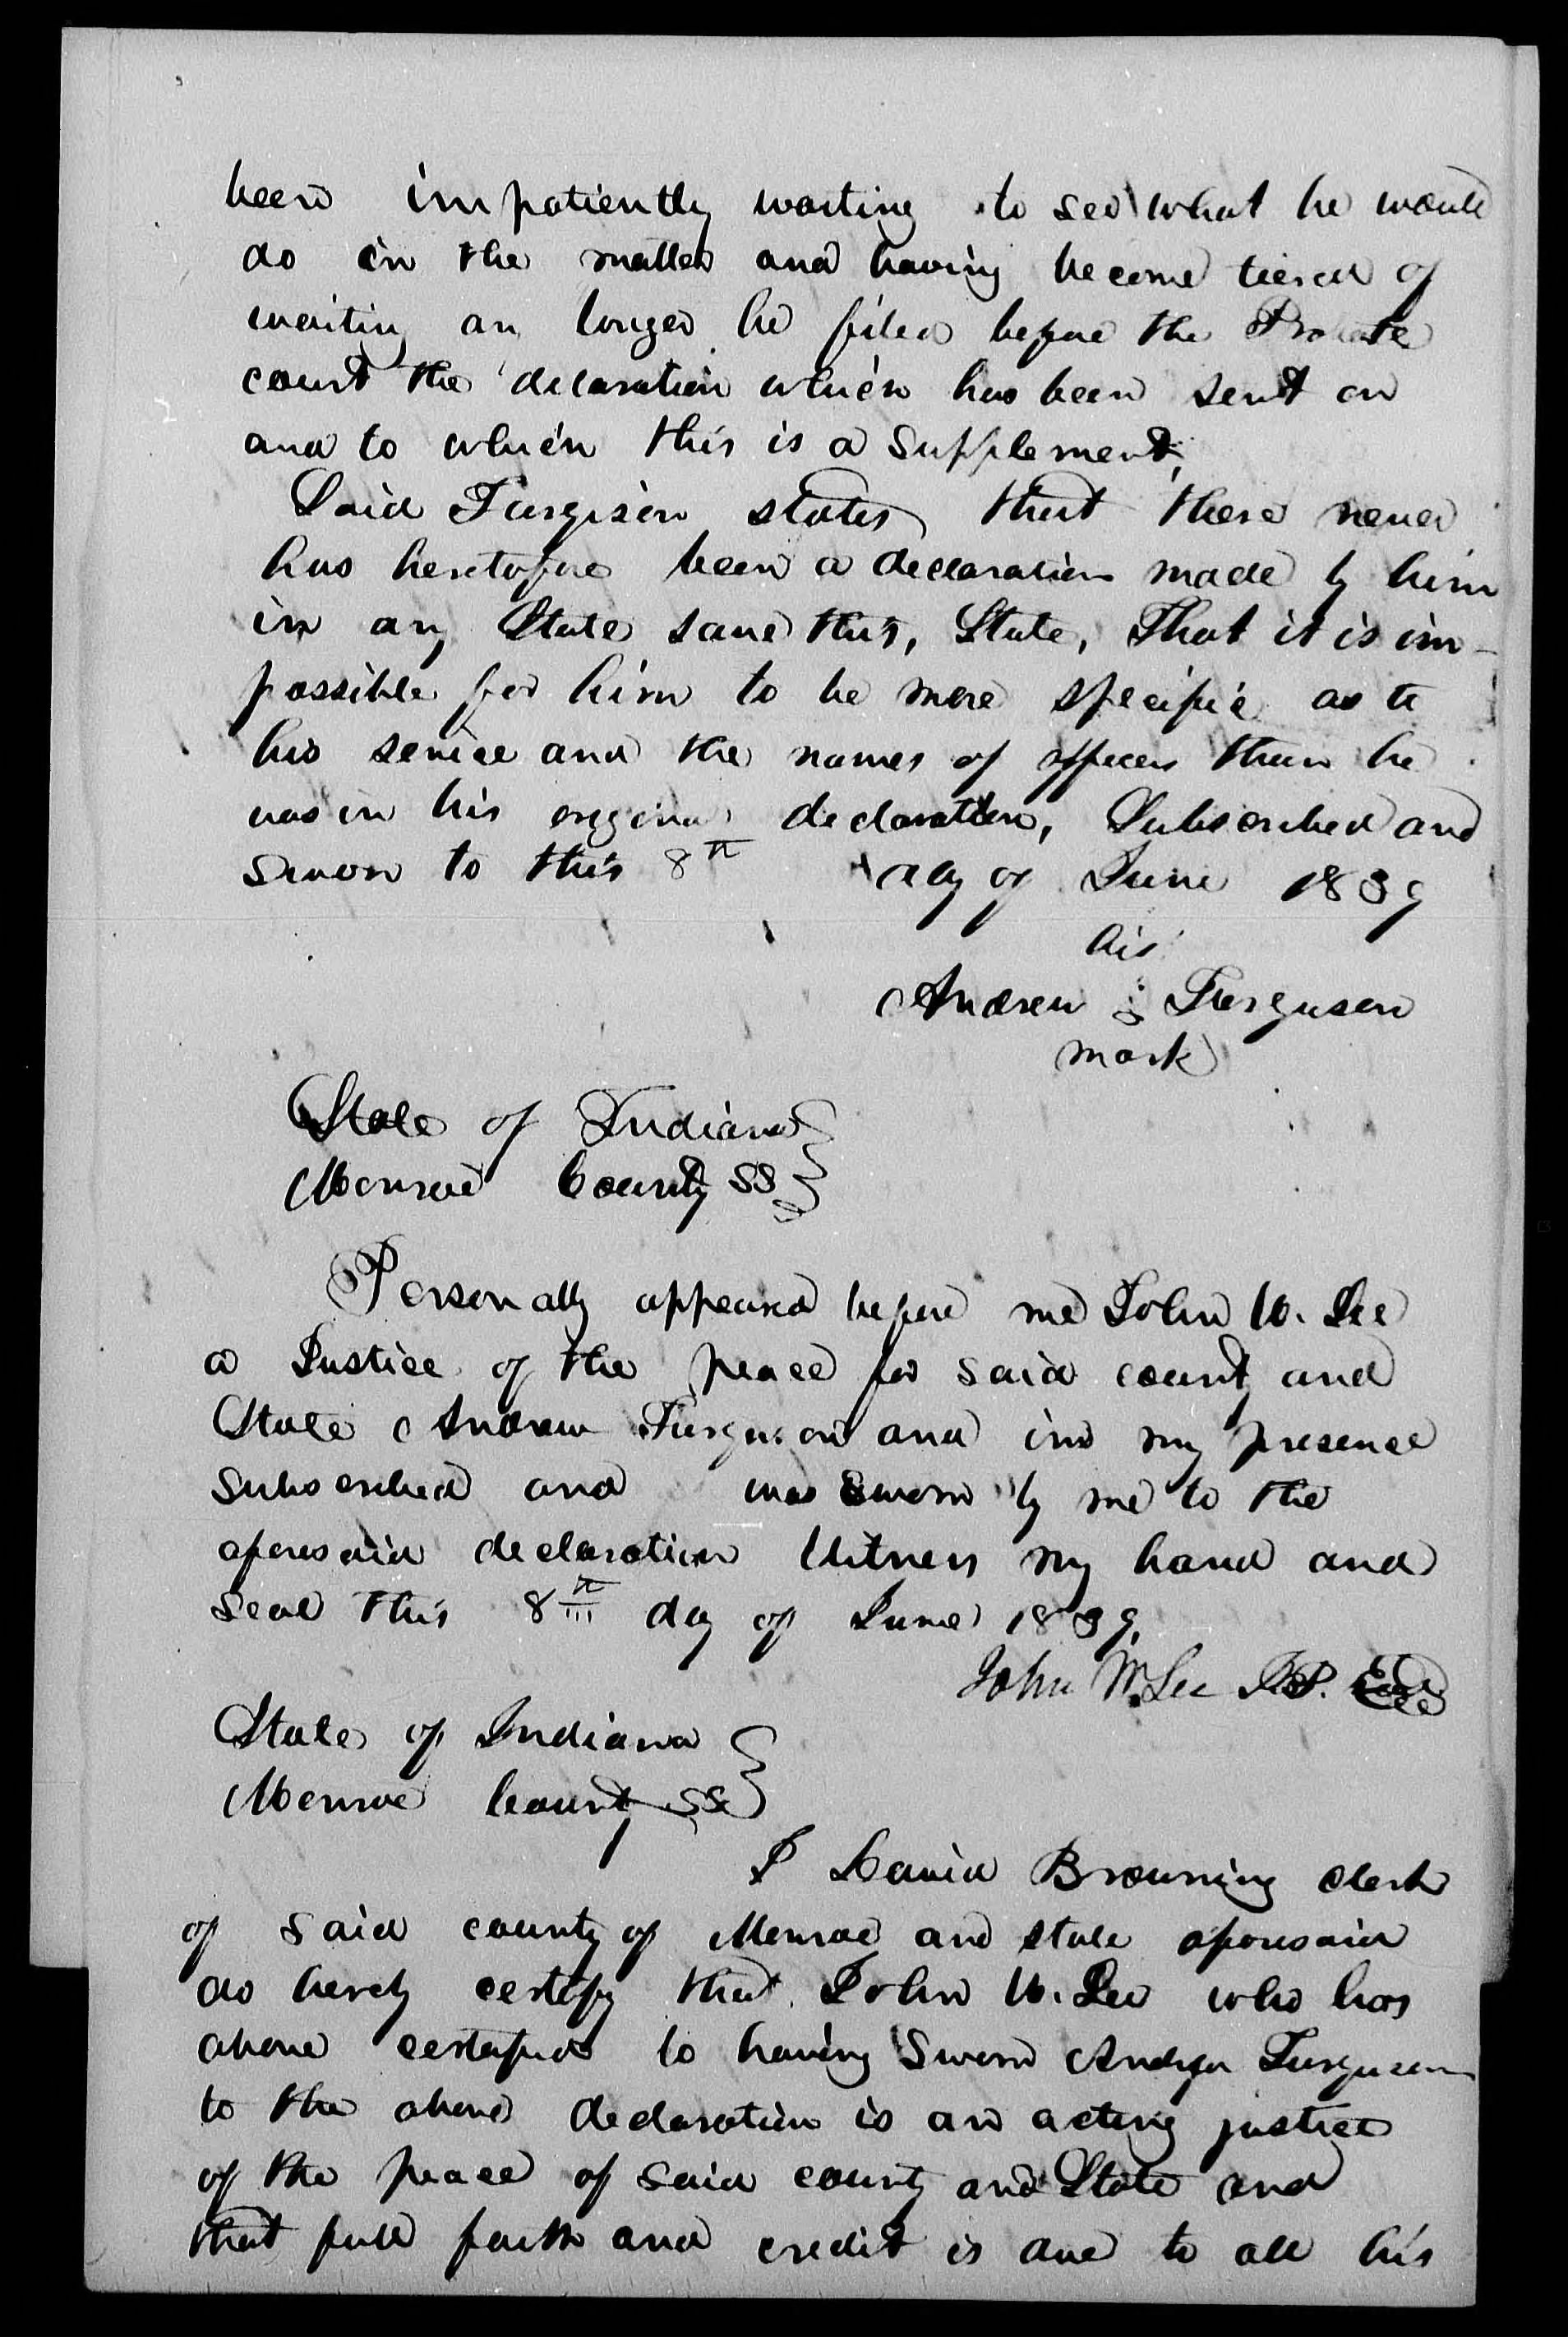 been impatiently waiting to see what he would
do in the matter and having become tiered of
waiting any longer he filed before the Probate
court the declaration which has been sent on
and to which this is a supplement,
Said Furgison states that there never
has heretofore been a declaration made by him
in any State save this, State, That it is im-
possible for him to be more specific as to
his service and the names of officers than he
was in his original declaration, Subscribed and
sworn to this 8th day of June 1839
his
Andrew Ferguson
mark
State of Indiana
Monroe County SS
Personally appeared before me John W. Lee
a Justice of the peace for said county and
State Andrew Furguson and in my presence
subscribed and was sworn by me to the
aforesaid declaration Witness my hand and
seal this 8th day of June 1839,
John W. Lee J.P.
State of Indiana
Monroe County SS
I David Browning clerk
of said county of Monroe and state aforesaid
do hereby certify that John W. Lee who has
above certified to having Sworn Andrew Furguson
to the above declaration is an acting justice
of the peace of said county and State and
that full faith and credit is due to all his